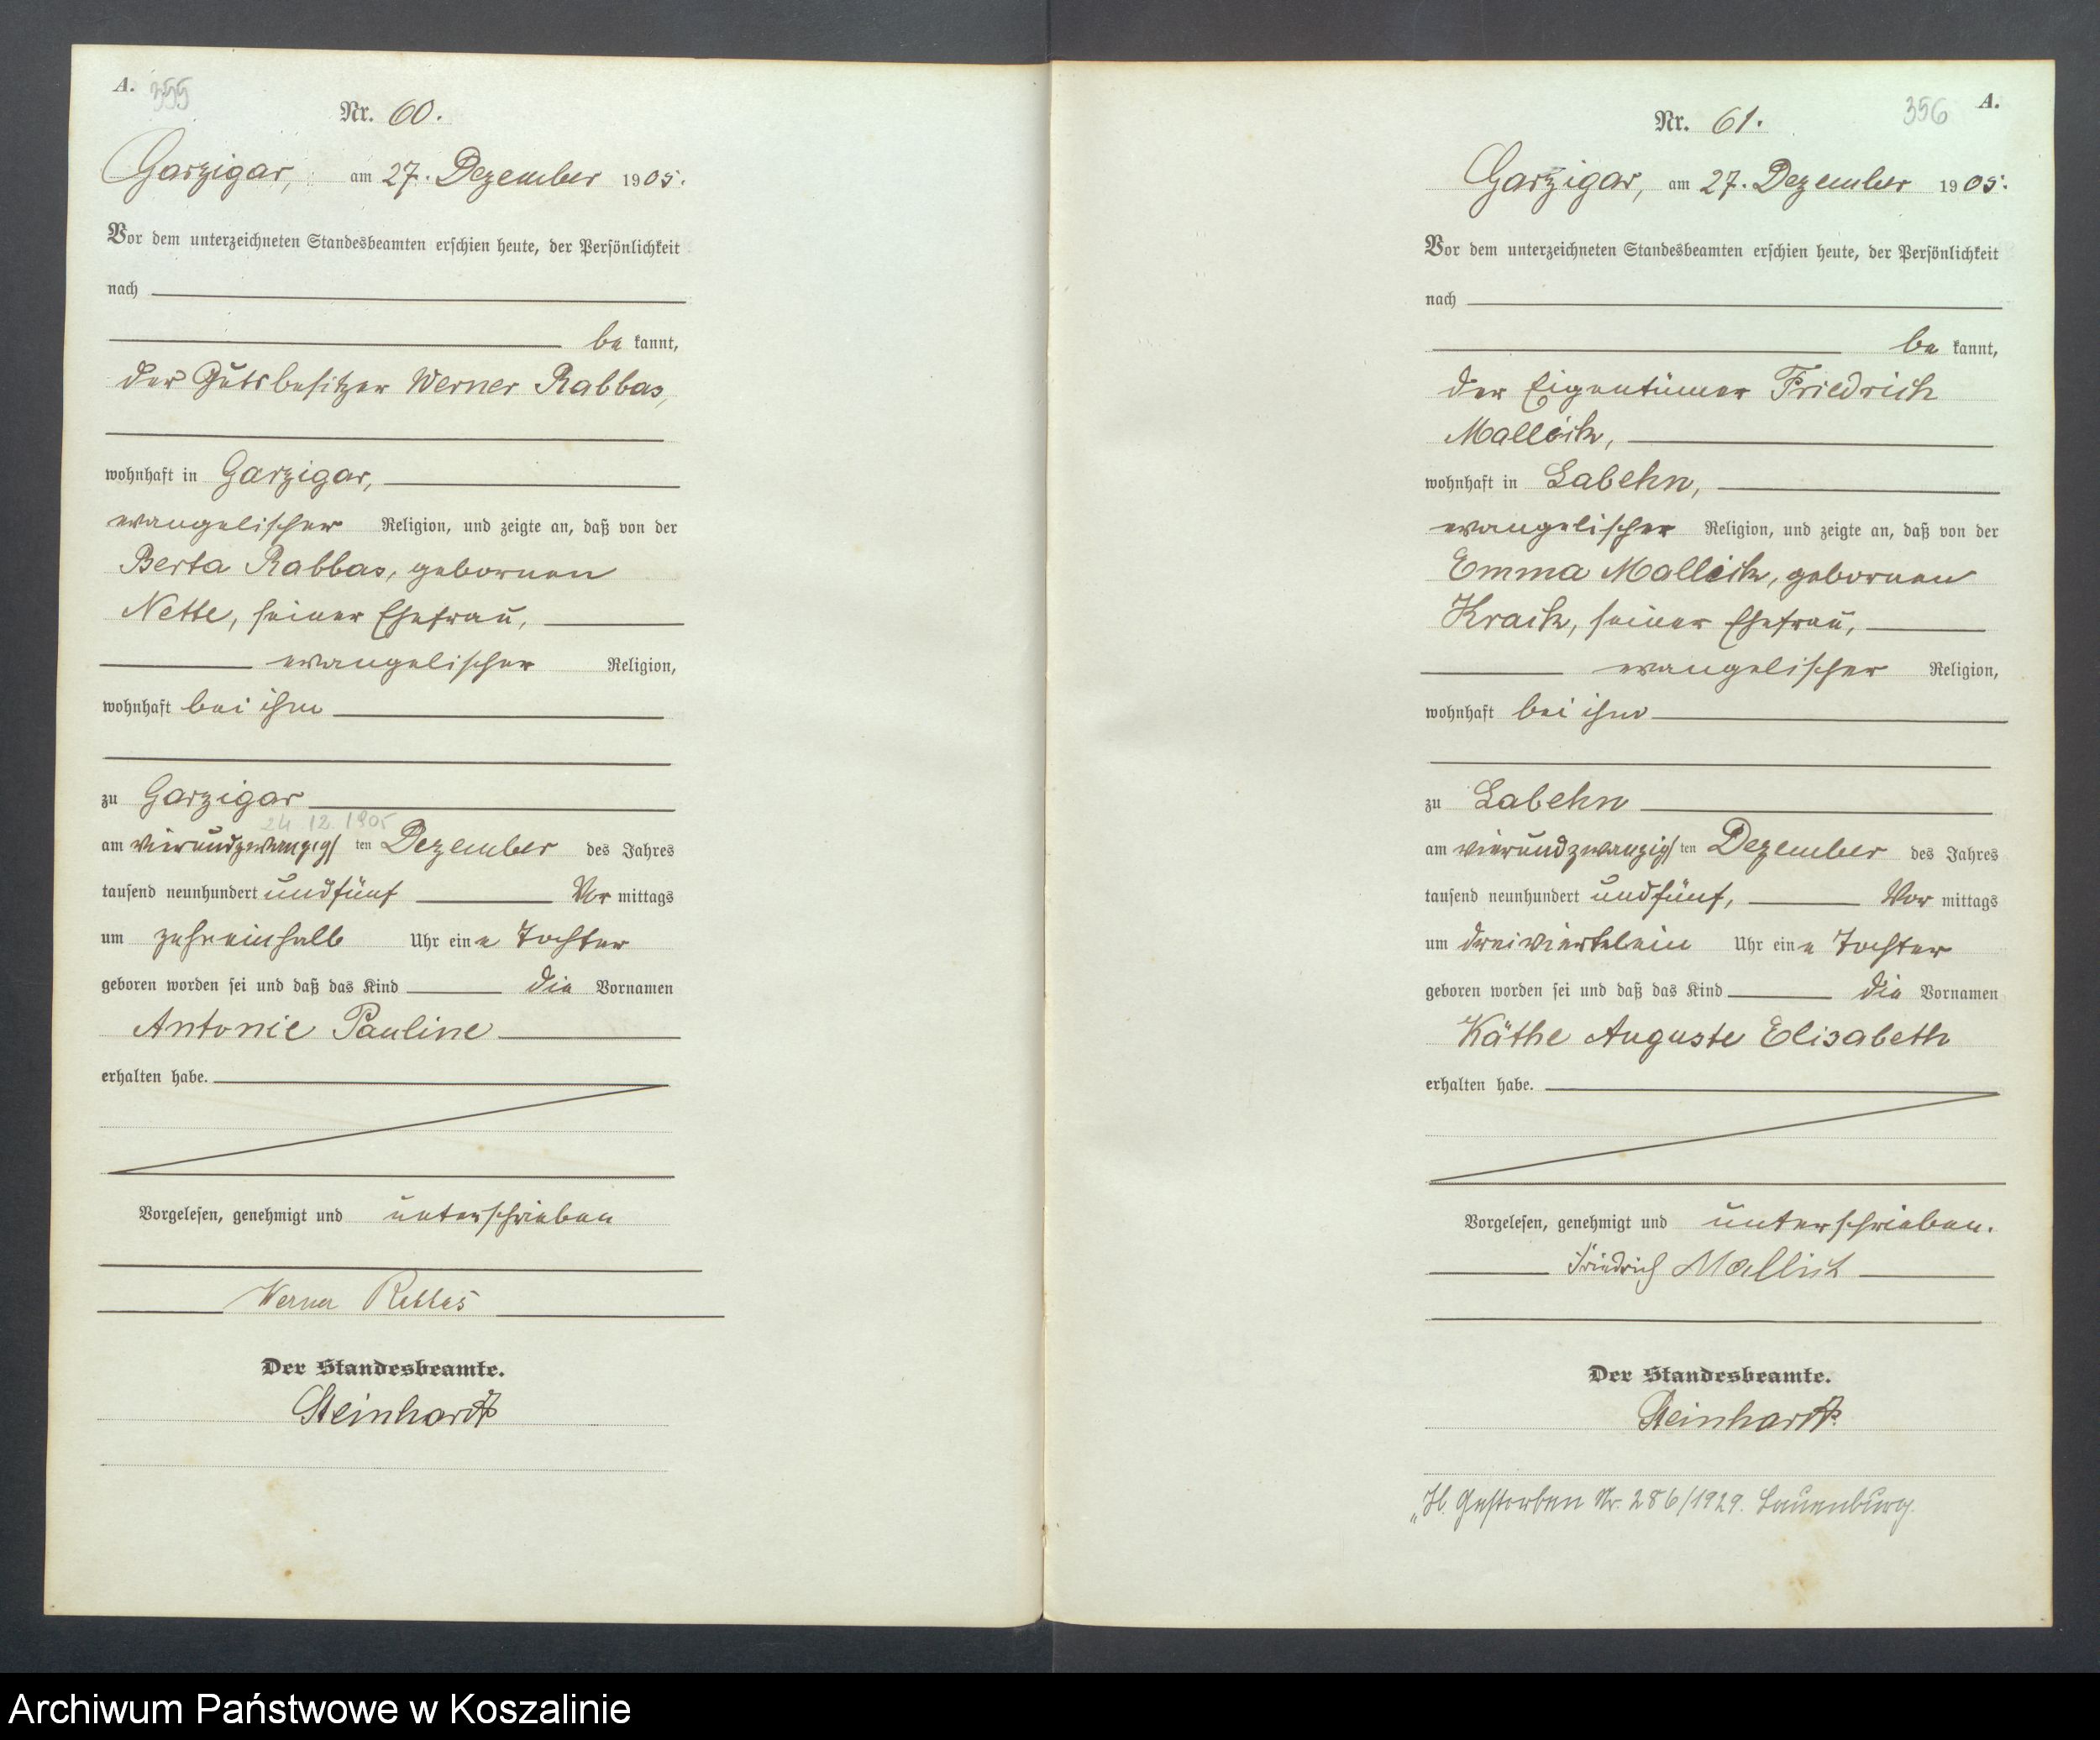 A. 355
Nr. 60.
Garzigar, am 27. Dezember 1905.
Vor dem unterzeichneten Standesbeamten erschien heute, der Persönlichkeit
nach
be kannt,
der Gutsbesitzer Werner Rabbas,
wohnhaft in Garzigar,
evangelischer Religion, und zeigte an, daß von der
Berta Rabbas, geborenen
Nette, seiner Ehefrau,
evangelischer Religion,
wohnhaft bei ihm
zu Garzigar
24. 12. 1905
am vierundzwanzigs ten Dezember des Jahres
tausend neunhundert undfünf Vor mittags
um zehneinhalb Uhr eine Tochter
geboren worden sei und daß das Kind die Vornamen
Antonie Pauline
erhalten habe.
Vorgelesen, genehmigt und unterschrieben
Werner Rabbas
Der Standesbeamte.
Steinhardt
356 A.
Nr. 61.
Garzigar, am 27. Dezember 1905.
Vor dem unterzeichneten Standesbeamten erschien heute, der Persönlichkeit
nach
be kannt,
der Eigentümer Friedrich
Mallick,
wohnhaft in Labehn,
evangelischer Religion, und zeigte an, daß von der
Emma Mallick, geborenen
Krack, seiner Ehefrau,
evangelischer Religion,
wohnhaft bei ihm
zu Labehn
am vierundzwanzigs ten Dezember des Jahres
tausend neunhundert undfünf, Vor mittags
um dreiviertelein Uhr eine Tochter
geboren worden sei und daß das Kind die Vornamen
Käthe Auguste Elisabeth
erhalten habe.
Vorgelesen, genehmigt und unterschrieben.
Friedrich Mallick
Der Standesbeamte.
Steinhardt.
Gestorben Nr. 286/1929. Lauenburg.
Archiwum Państwowe w Koszalinie